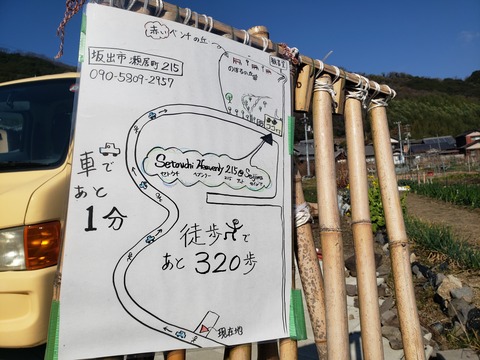 赤いベンチの丘
坂出市瀬居町215
090-5809-2957
Setouchi Heavenly 215@Seijima
セトウチ ヘブンリー 215 アット セイジマ
車で
あと
1分
徒歩で
あと320歩
現在地